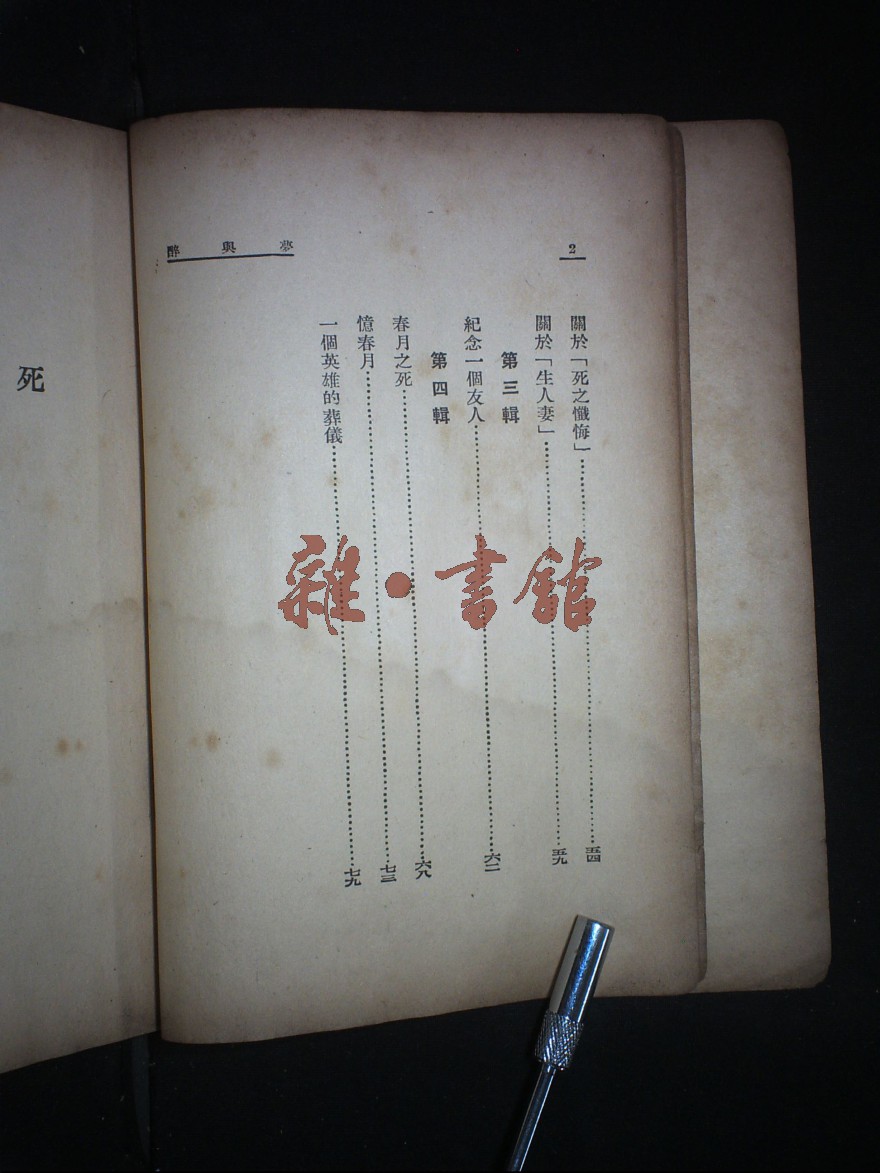 2
夢與醉
關於「死之懺悔」 五四
關於「生人妻」 五九
第三輯
紀念一個友人 六二
第四輯
春月之死 六八
憶春月 七三
一個英雄的葬儀 七九
死
雜·書館